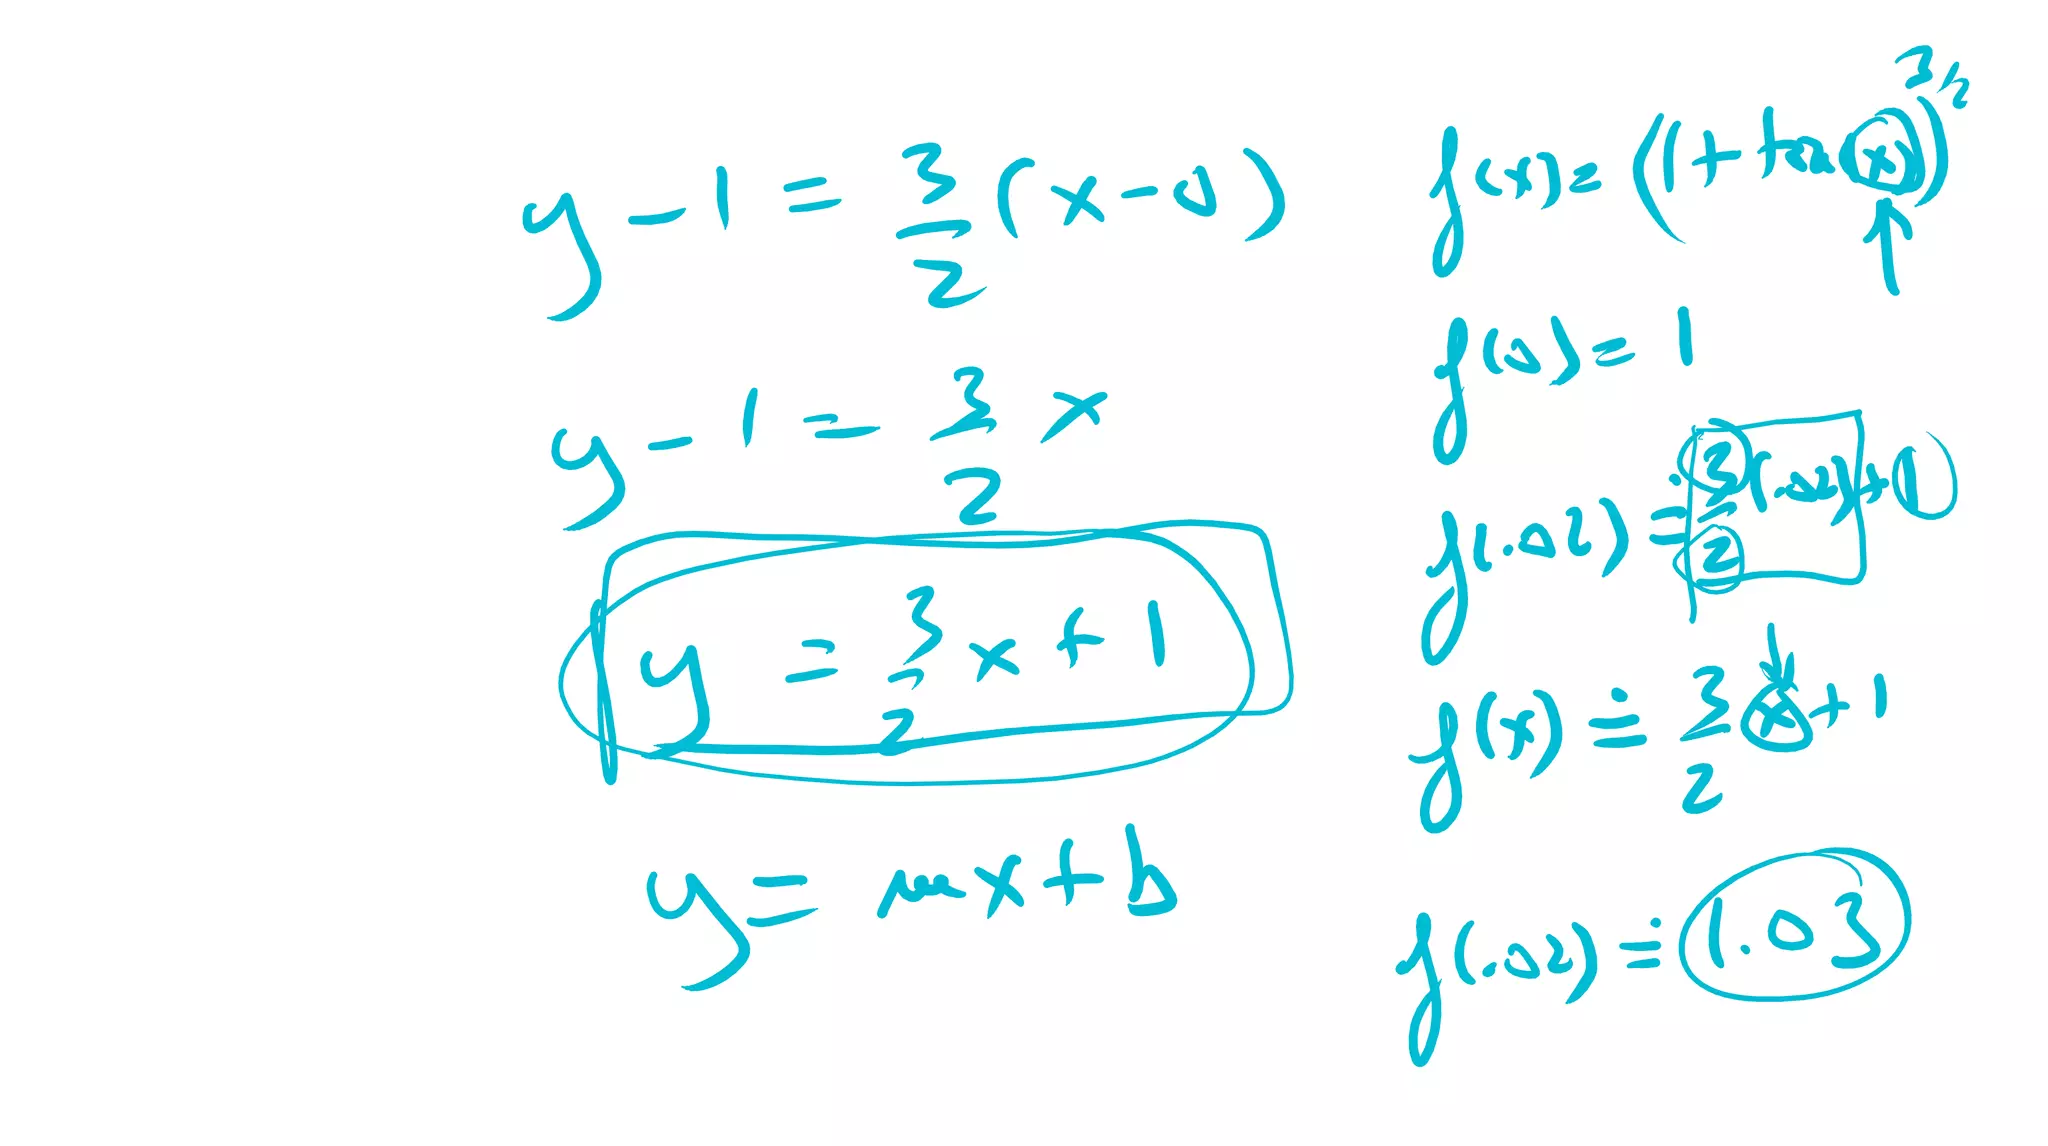 y - 1 = 3/2 (x - 0)
y - 1 = 3/2 x
y = 3/2 x + 1
y = mx + b
f(x) = (1 + tan(x))^3/2
f(0) = 1
f(.02) ≐ 3/2 (.02) + 1
f(x) ≐ 3/2 x + 1
f(.02) ≐ 1.03